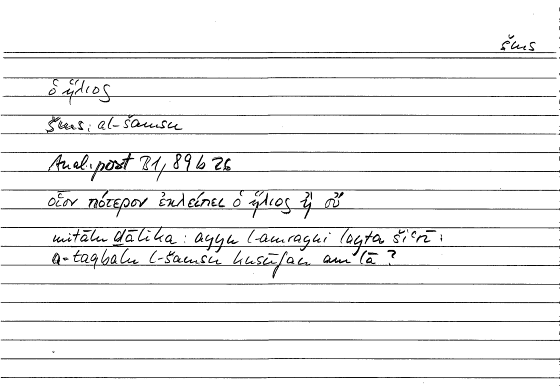 šms
ὁ ἥλιος
šms; al-šamsu
Anal. post B1, 89 b 26
οἷον πότερον ἐκλείπει ὁ ἥλιος ἢ οὔ
miṯālu ḏālika: ayyu l-amrayni layta šiʿrī:
a-taqbalu l-šamsu kusūfan am lā?